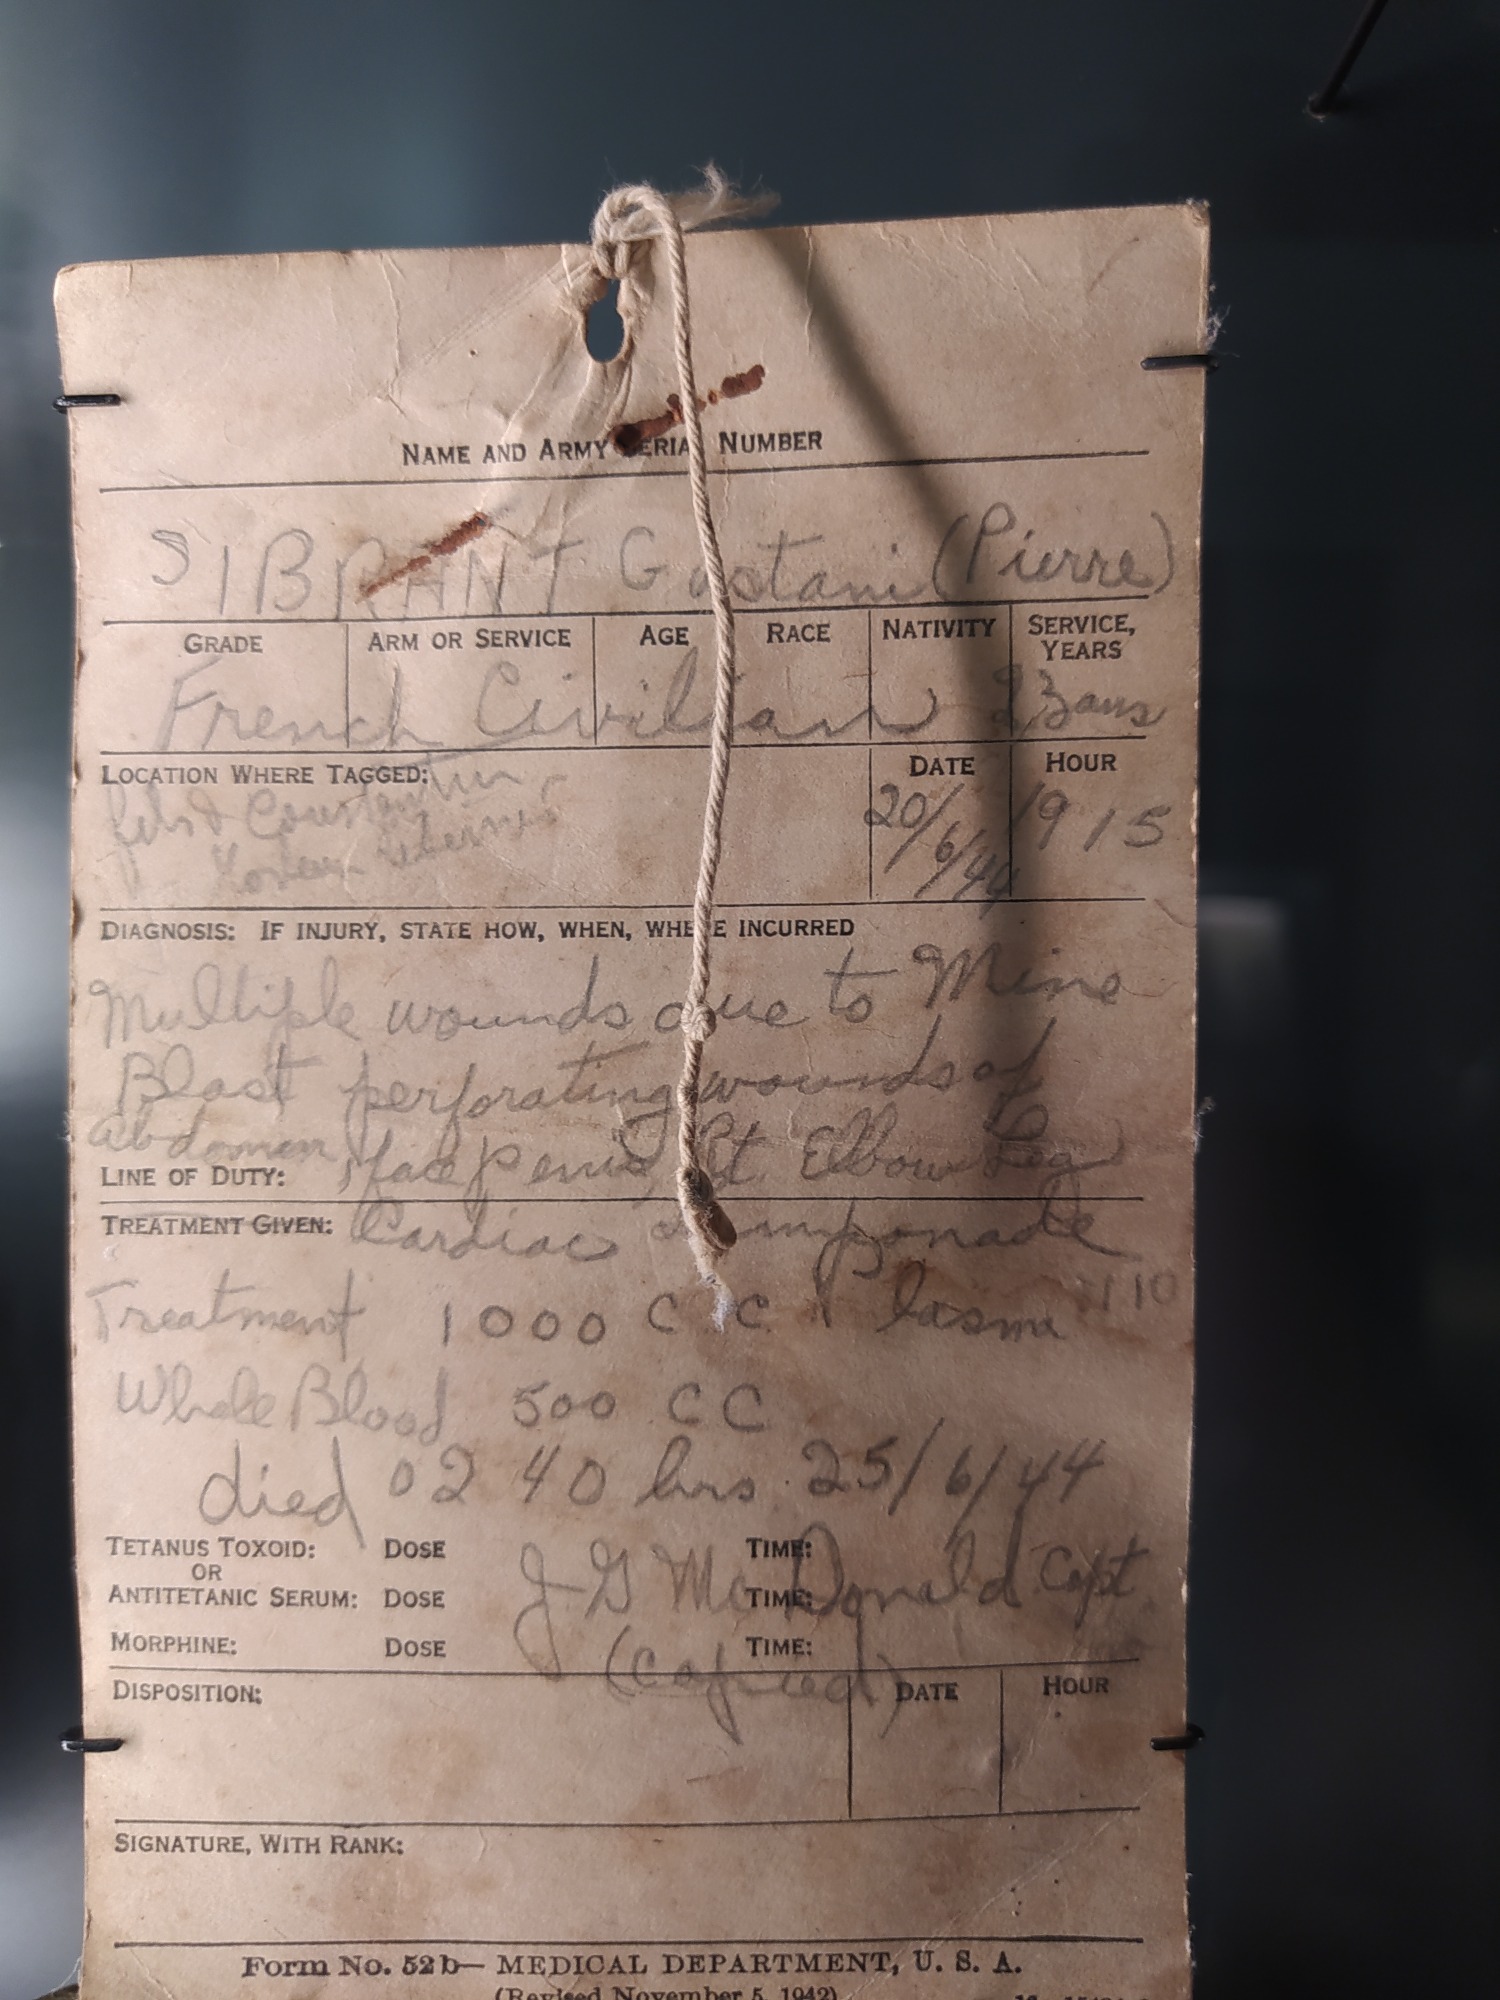 NAME AND ARMY SERIAL NUMBER
SIBRANT Gastani (Pierre)
GRADE ARM OR SERVICE AGE RACE NATIVITY SERVICE, YEARS
French Civilian 23 ans
LOCATION WHERE TAGGED: DATE HOUR
20/6/44 1915
DIAGNOSIS: IF INJURY, STATE HOW, WHEN, WHERE INCURRED
Multiple wounds due to Mine
Blast perforating wounds of
abdomen, face penis, Rt. Elbow Leg
LINE OF DUTY:
TREATMENT GIVEN: Cardiac tamponade
Treatment 1000 CC Plasma 110
Whole Blood 500 CC
died 0240 hrs 25/6/44
TETANUS TOXOID: DOSE TIME:
OR
J G McDonald Capt
ANTITETANIC SERUM: DOSE TIME:
MORPHINE: DOSE TIME:
(Copied)
DISPOSITION: DATE HOUR
SIGNATURE, WITH RANK:
Form No. 52b— MEDICAL DEPARTMENT, U. S. A.
(Revised November 5, 1942)